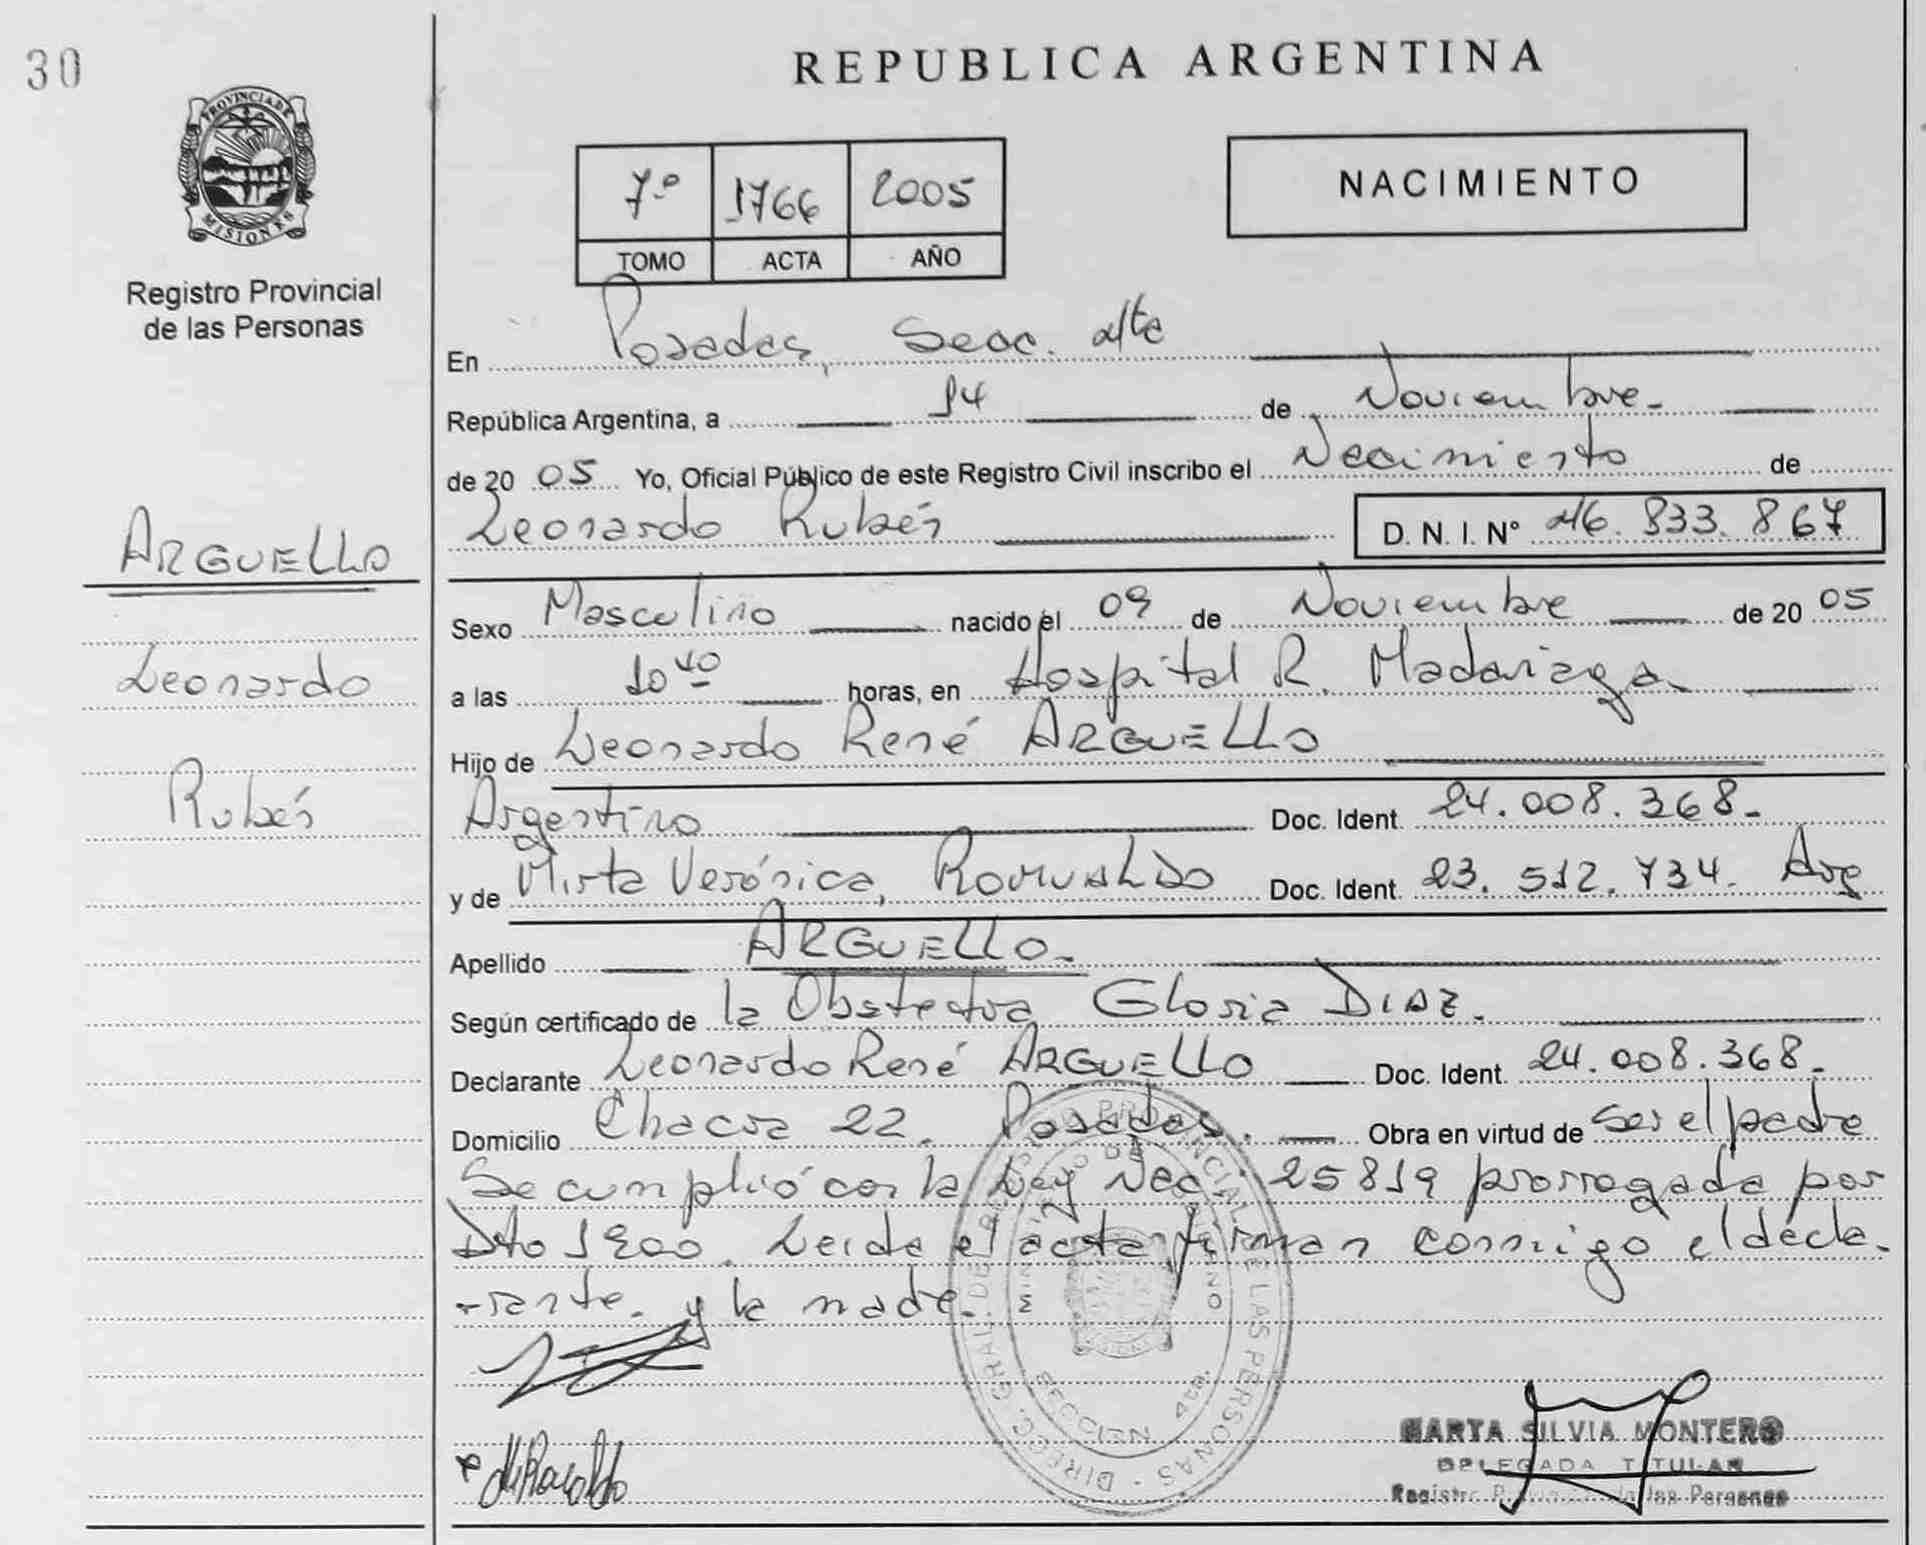 30
REPUBLICA ARGENTINA
PROVINCIA DE
MISIONES
Registro Provincial
de las Personas
7º 1766 2005
TOMO ACTA AÑO
NACIMIENTO
En Posadas, Secc. 4ta
República Argentina, a 14 de Noviembre.
de 20 05 Yo, Oficial Público de este Registro Civil inscribo el Nacimiento de
Leonardo Rubén D. N. I. N° 46.833.867
ARGUELLO
Leonardo
Rubén
Sexo Masculino nacido el 09 de Noviembre de 20 05
a las 10 40 horas, en Hospital R. Madariaga.
Hijo de Leonardo René ARGUELLO
Argentino Doc. Ident. 24.008.368.
y de Mirta Verónica, ROMUALDO Doc. Ident. 23.512.734. Arg
Apellido ARGUELLO.
Según certificado de la Obstetra Gloria DIAZ.
Declarante Leonardo René ARGUELLO Doc. Ident. 24.008.368.
Domicilio Chacra 22. Posadas. Obra en virtud de ser el padre
Se cumplió con la Ley Nac. 25819 prorrogada por
Dto 1900. Leida el acta firman conmigo el decla-
rante. y la madre.
DIRECC. GRAL. DE REGISTRO PROVINCIAL DE LAS PERSONAS
SECCION 4ta.
MARTA SILVIA MONTERO
DELEGADA TITULAR
Registro Provincial de las Personas